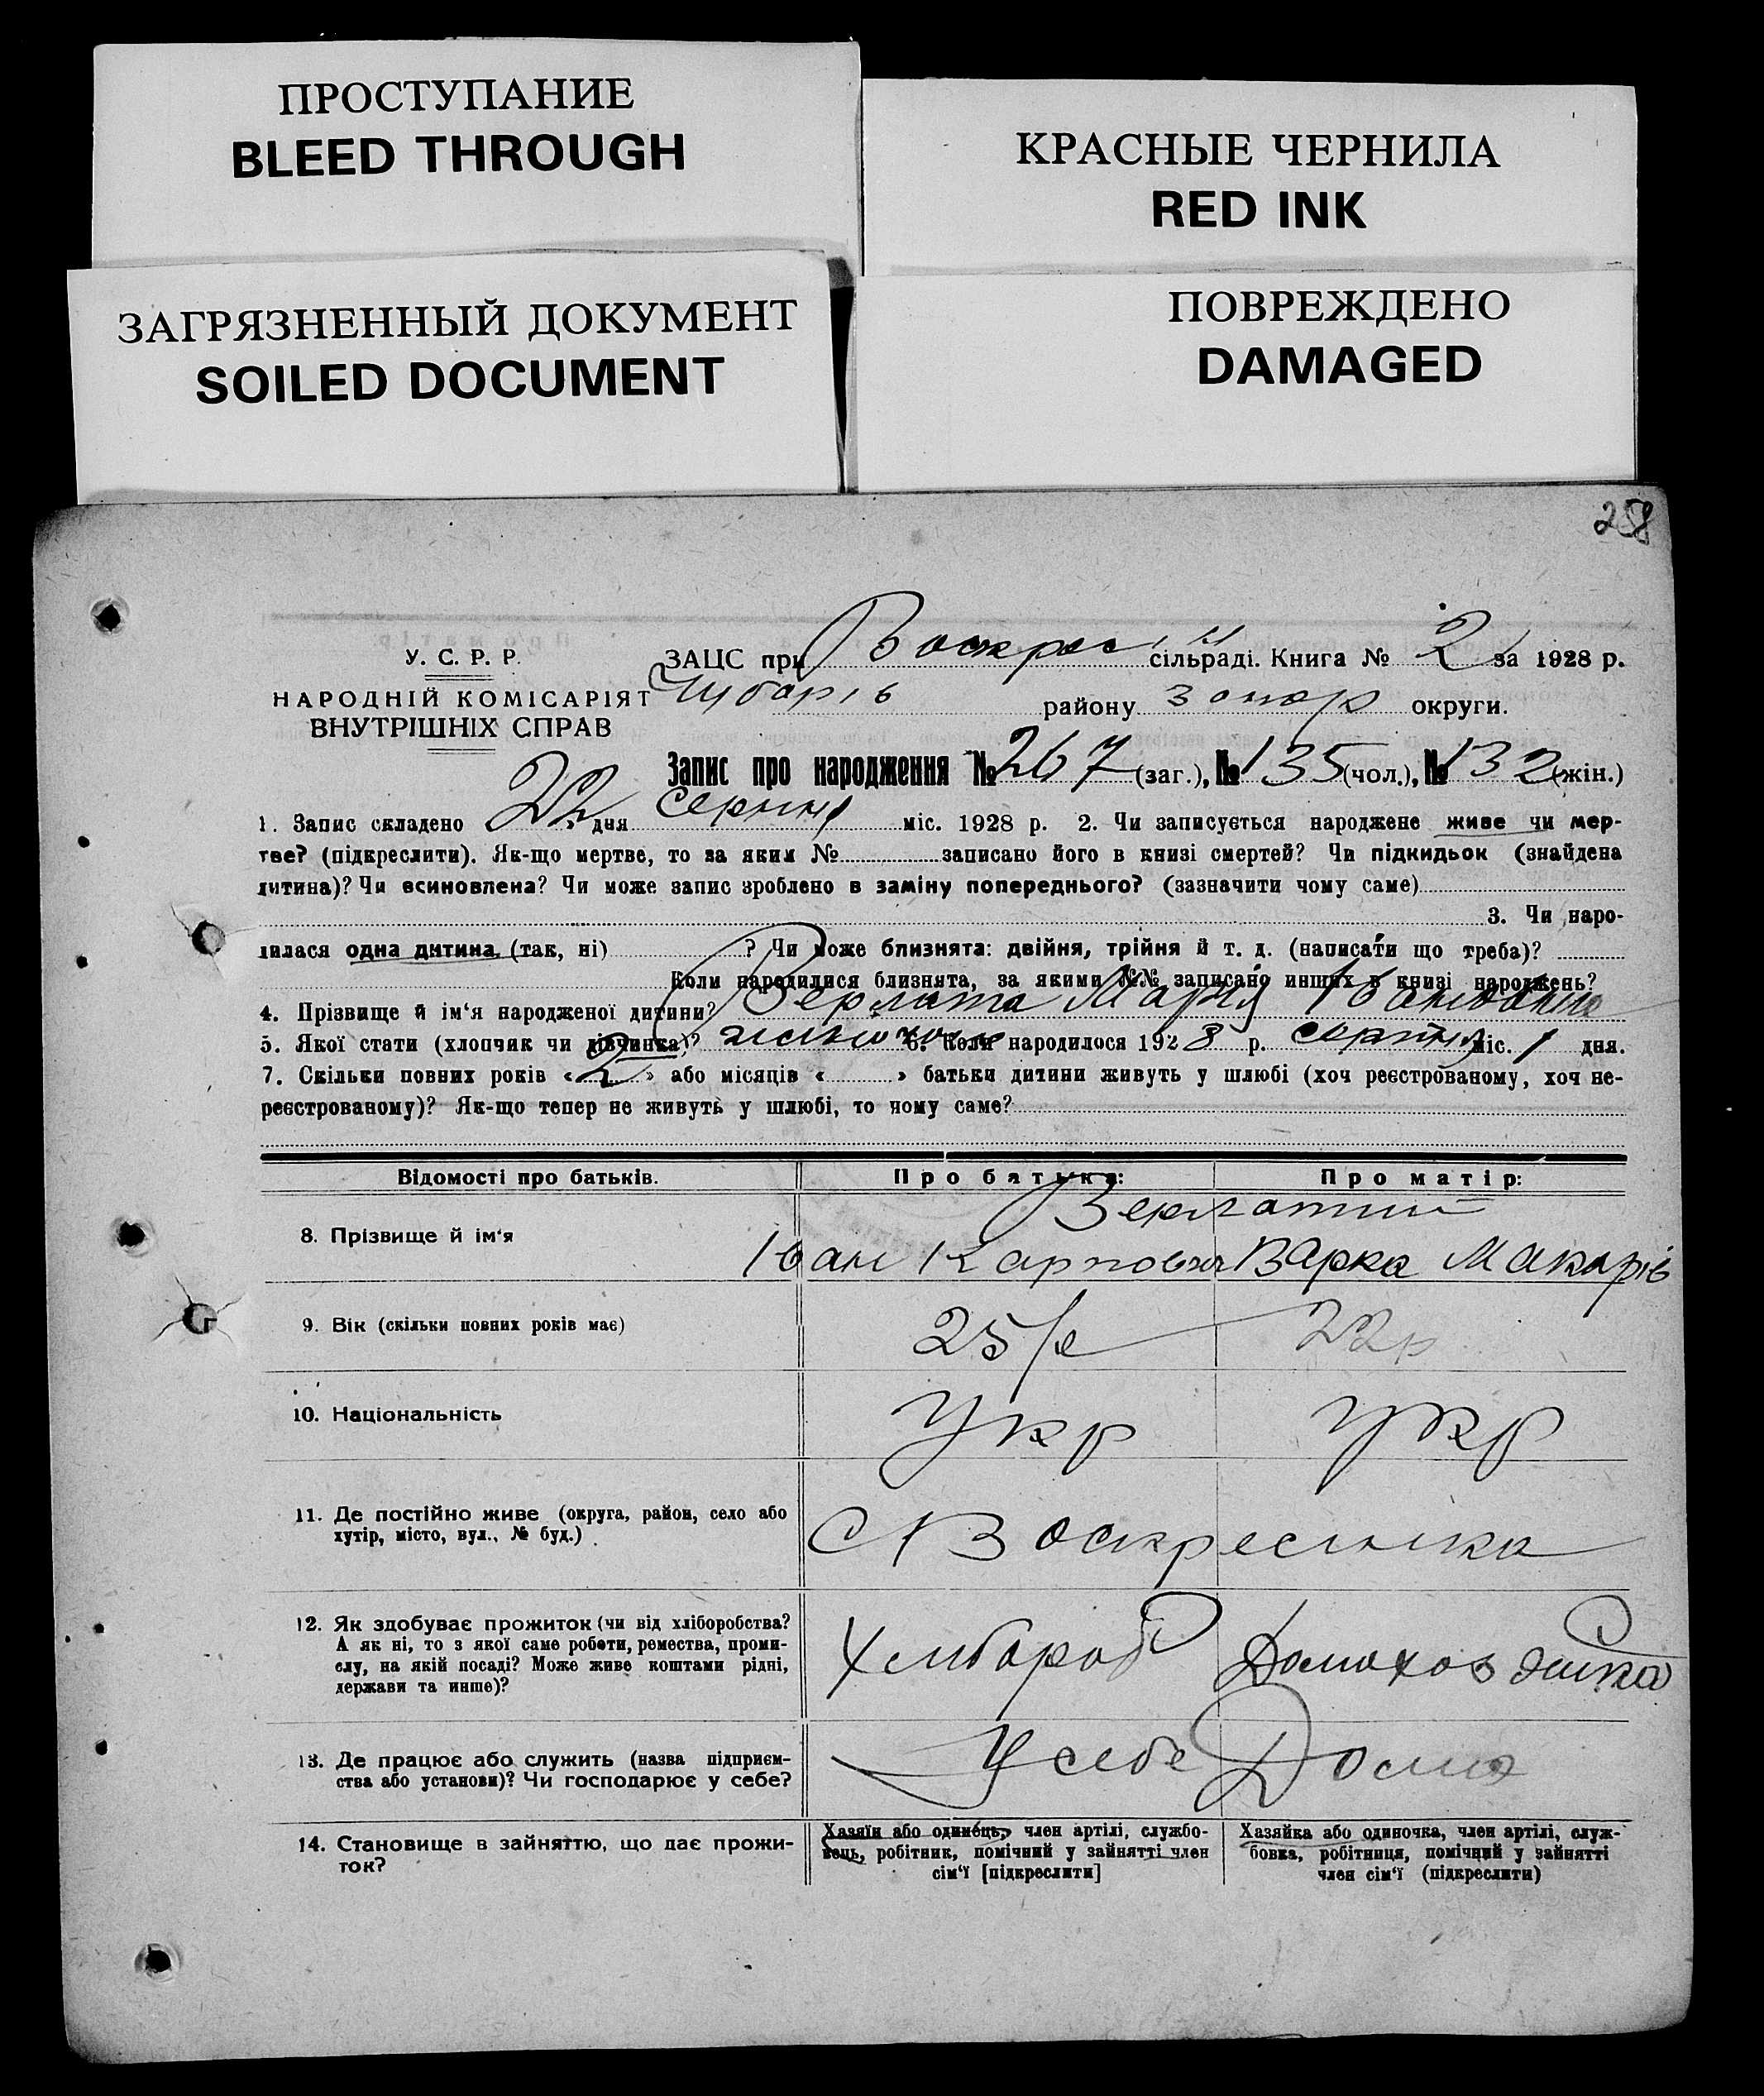 ПРОСТУПАНИЕ
BLEED THROUGH
КРАСНЫЕ ЧЕРНИЛА
RED INK
ЗАГРЯЗНЕННЫЙ ДОКУМЕНТ
SOILED DOCUMENT
ПОВРЕЖДЕНО
DAMAGED
258
У. С. Р. Р.
НАРОДНІЙ КОМІСАРІЯТ
ВНУТРІШНІХ СПРАВ
ЗАЦС при Воскрес сільраді. Книга № 2 за 1928 р.
Чубарів району Запор округи.
Запис про народження № 267 (заг.), № 135 (чол.), № 132 (жін.)
1. Запис складено 22 дня серпня міс. 1928 р. 2. Чи записується народжене живе чи мер-
тве? (підкреслити). Як-що мертве, то за яким № записано його в книзі смертей? Чи підкидьок (знайдена
дитина)? Чи всиновлена? Чи може запис зроблено в заміну попереднього? (зазначити чому саме)
3. Чи наро-
дилася одна дитина (так, ні) ? Чи може близнята: двійня, трійня й т. д. (написати що треба)?
Коли народилися близнята, за якими №№ записано инших в книзі народжень?
4. Прізвище й ім'я народженої дитини? Мария
5. Якої статі (хлопчик чи дівчинка)? 6. Коли народилося 1928 р. серпня міс. 1 дня.
7. Скільки повних років « 2 » або місяців « » батьки дитини живуть у шлюбі (хоч реєстрованому, хоч не-
реєстрованому)? Як-що тепер не живуть у шлюбі, то чому саме?
Відомості про батьків. Про батька: Про матір:
8. Прізвище й ім'я
Іван Карпович Варка Макарів
9. Вік (скільки повних років має) 25 р 22 р
10. Національність Укр Укр
11. Де постійно живе (округа, район, село або
хутір, місто, вул., № буд.)
С Воскресенка
12. Як здобуває прожиток (чи від хліборобства?
А як ні, то з якої саме роботи, ремества, проми-
слу, на якій посаді? Може живе коштами рідні,
держави та инше)?
Хлибороб
13. Де працює або служить (назва підприєм-
ства або установи)? Чи господарює у себе?
У себе Дома
14. Становище в зайняттю, що дає прожи-
ток?
Хазяїн або одинець, член артілі, службо-
вець, робітник, помічний у зайнятті член
сім'ї [підкреслити]
Хазяйка або одиночка, член артілі, служ-
бовка, робітниця, помічний у зайнятті
член сім'ї (підкреслити)